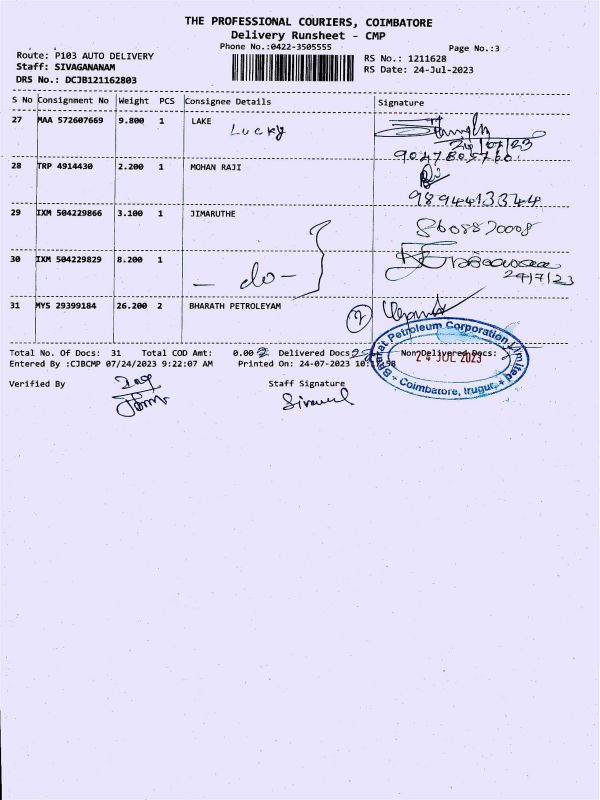 THE PROFESSIONAL COURIERS, COIMBATORE
Delivery Runsheet - CMP
Phone No.:0422-3505555 Page No.:3
Route: P103 AUTO DELIVERY RS No.: 1211628
Staff: SIVAGANANAM RS Date: 24-Jul-2023
DRS No.: DCJB121162803
S No Consignment No Weight PCS Consignee Details Signature
27 MAA 572607669 9.800 1 LAKE
Lucky
24/07/23
28 TRP 4914430 2.200 1 MOHAN RAJI
9894413344
29 IXM 504229866 3.100 1 JIMARUTHE
8608870008
30 IXM 504229829 8.200 1
- do -
24/7/23
31 MYS 29399184 26.200 2 BHARATH PETROLEYAM
Bharat Petroleum Corporation Limited
24 JUL 2023
Coimbatore, Irugur
Total No. Of Docs: 31 Total COD Amt: 0.00 Delivered Docs Non Delivered Docs:
Entered By :CJBCMP 07/24/2023 9:22:07 AM Printed On: 24-07-2023
Verified By Staff Signature